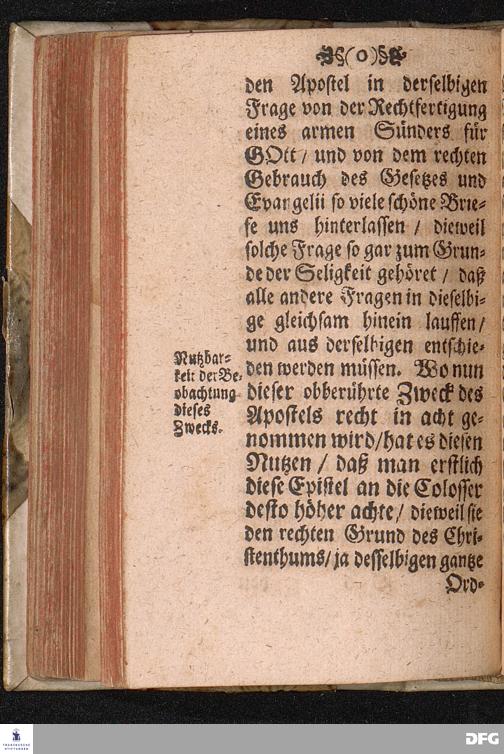 §(0)§
den Apostel in derselbigen
Frage von der Rechtfertigung
eines armen Sünders für
GOtt / und von dem rechten
Gebrauch des Gesetzes und
Evangelii so viele schöne Brie-
fe uns hinterlassen / dieweil
solche Frage so gar zum Grun-
de der Seligkeit gehöret / daß
alle andere Fragen in dieselbi-
ge gleichsam hinein lauffen /
und aus derselbigen entschie-
den werden müssen. Wo nun
dieser obberührte Zweck des
Apostels recht in acht ge-
nommen wird / hat es diesen
Nutzen / daß man erstlich
diese Epistel an die Colosser
desto höher achte / dieweil sie
den rechten Grund des Chri-
stenthums / ja desselbigen gantze
Ord-
Nutzbar-
keit der Be-
obachtung
dieses
Zwecks.
FRANCKESCHE
STIFTUNGEN
DFG